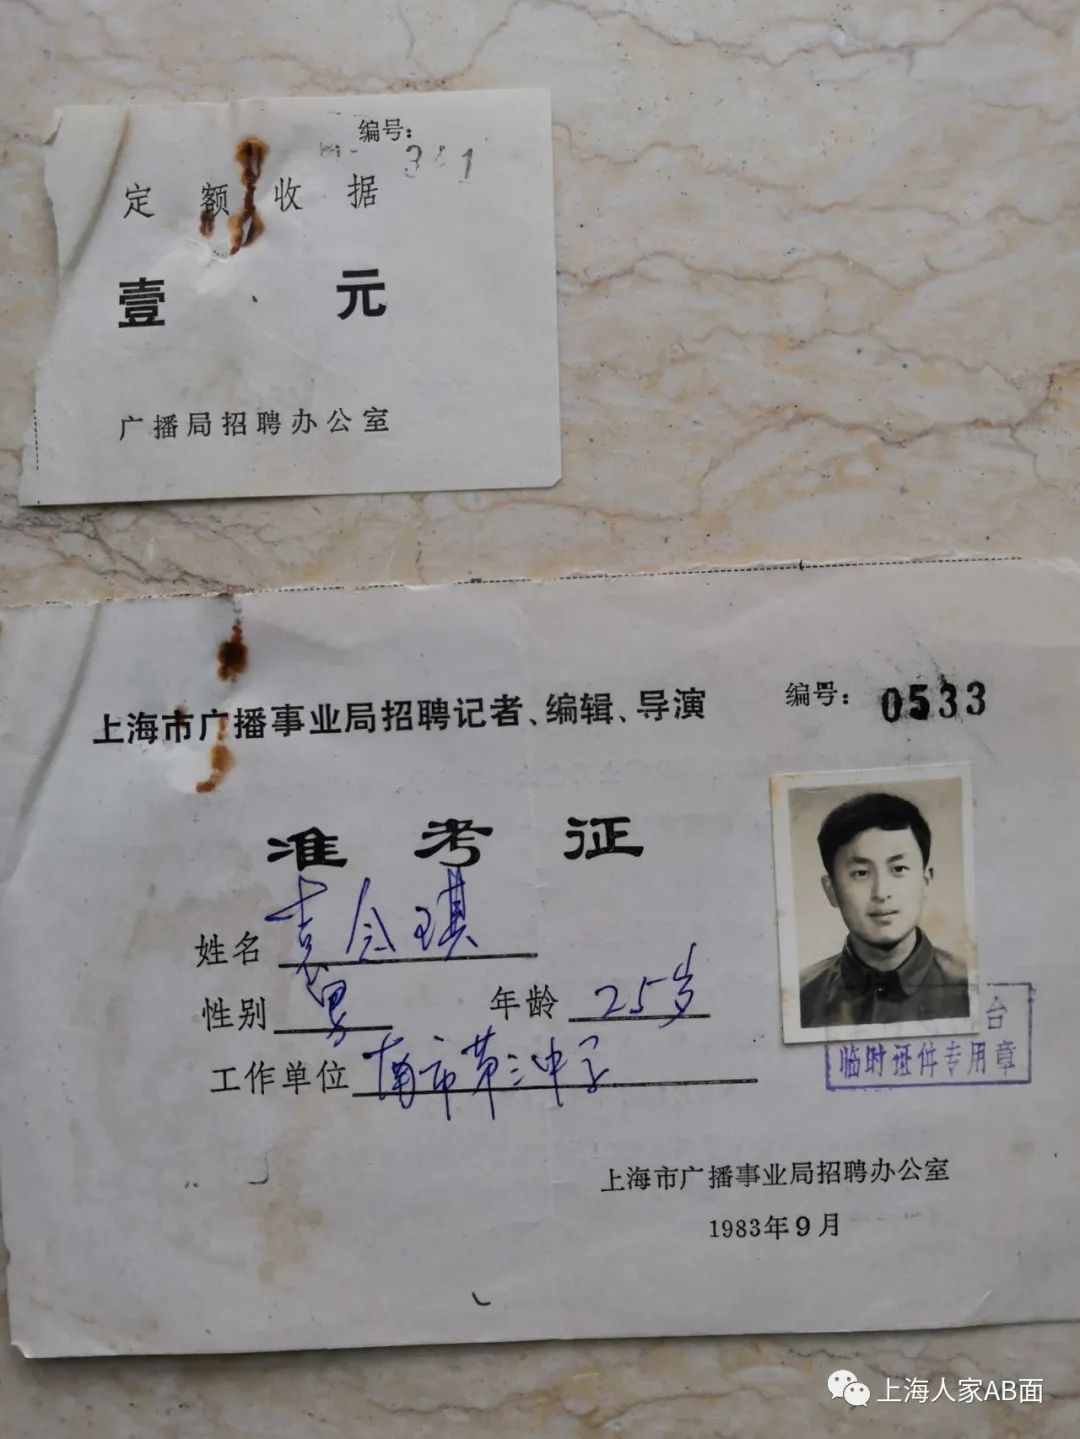 编号：
341
定额收据
壹元
广播局招聘办公室
上海市广播事业局招聘记者、编辑、导演
编号：0533
准考证
姓名 袁念琪
性别 男 年龄 25岁
工作单位 南市第三中学
台
临时证件专用章
上海市广播事业局招聘办公室
1983年9月
上海人家AB面